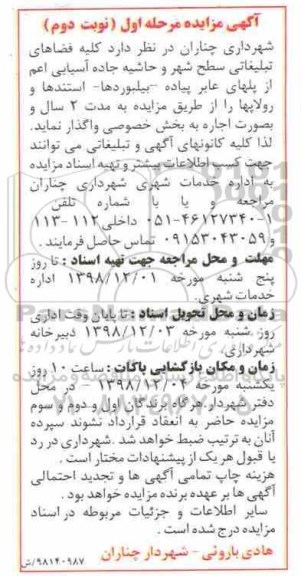 آگهی مزایده مرحله اول (نوبت دوم)
شهرداری چناران در نظر دارد کلیه فضاهای
تبلیغاتی سطح شهر و حاشیه جاده آسیایی اعم
از پلهای عابر پیاده -بیلبوردها- استندها و
رولاپها را از طریق مزایده به مدت ۲ سال و
بصورت اجاره به بخش خصوصی واگذار نماید.
لذا کلیه کانونهای آگهی و تبلیغاتی می توانند
جهت کسب اطلاعات بیشتر و تهیه اسناد مزایده
به اداره خدمات شهری شهرداری چناران
مراجعه و یا با شماره تلفن
۰۵۱-۴۶۱۲۷۳۴۰-۱ داخلی ۱۱۲-۱۱۳
و ۰۹۱۵۳۰۴۳۰۵۹ تماس حاصل فرمایند.
مهلت و محل مراجعه جهت تهیه اسناد : تا روز
پنج شنبه مورخه ۱۳۹۸/۱۲/۰۱ اداره
خدمات شهری.
زمان و محل تحویل اسناد : تا پایان وقت اداری
روز شنبه مورخه ۱۳۹۸/۱۲/۰۳ دبیرخانه
شهرداری
زمان و مکان بازگشایی پاکات : ساعت ۱۰ روز
یکشنبه مورخه ۱۳۹۸/۱۲/۰۴ در محل
دفتر شهردار، هرگاه برندگان اول و دوم و سوم
مزایده حاضر به انعقاد قرارداد نشوند سپرده
آنان به ترتیب ضبط خواهد شد. شهرداری در رد
یا قبول هر یک از پیشنهادات مختار است.
هزینه چاپ تمامی آگهی ها و تجدید احتمالی
آگهی ها بر عهده برنده مزایده خواهد بود.
سایر اطلاعات و جزئیات مربوطه در اسناد
مزایده درج شده است.
هادی بارونی - شهردار چناران
۹۸۱۴۰۹۸۷/ش